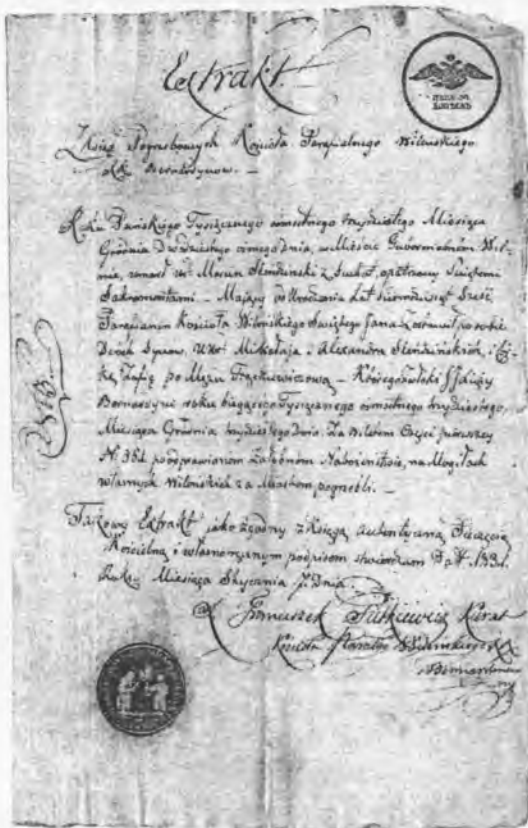 Extrakt.
Z Ksiąg Pogrzebowych Kościoła Parafialnego Wileńskiego
XX. Bernardynow. —
Roku Pańskiego Tysiącznego osmsetnego trzydziestego Miesiąca
Grudnia Dwudziestego osmego dnia, w Mieście Gubernialnem Wil-
nie, zmarł Marcin z Suchot, opatrzony Świętemi
Sakramentami — Mający od Urodzenia Lat siedmdziesiąt Sześć
Parafianin Kościoła Wileńskiego Świętego Jana Zostawił po sobie
Dzieci Synow, Mikołaja i Alexandra i
Zofię po Mężu — Którego zwłoki
Bernardyni roku bieżącego Tysiącznego osmsetnego trzydziestego,
Miesiąca Grudnia trzydziestego dnia. Za Biletem Części pierwszey
N. 361 po odprawionem żałobnem Nabożeństwie, na Mogiłach
własnych Wileńskich za Miastem pogrzebli. —
Takowy Extrakt jako zgodny z Księgą autentyczną Pieczęcią
Kościelną i własnoręcznym podpisem stwierdzam 1831.
Roku Miesiąca Stycznia 7. Dnia.
Franciszek Kurat
Kościoła Wileńskiego
Bernardynow